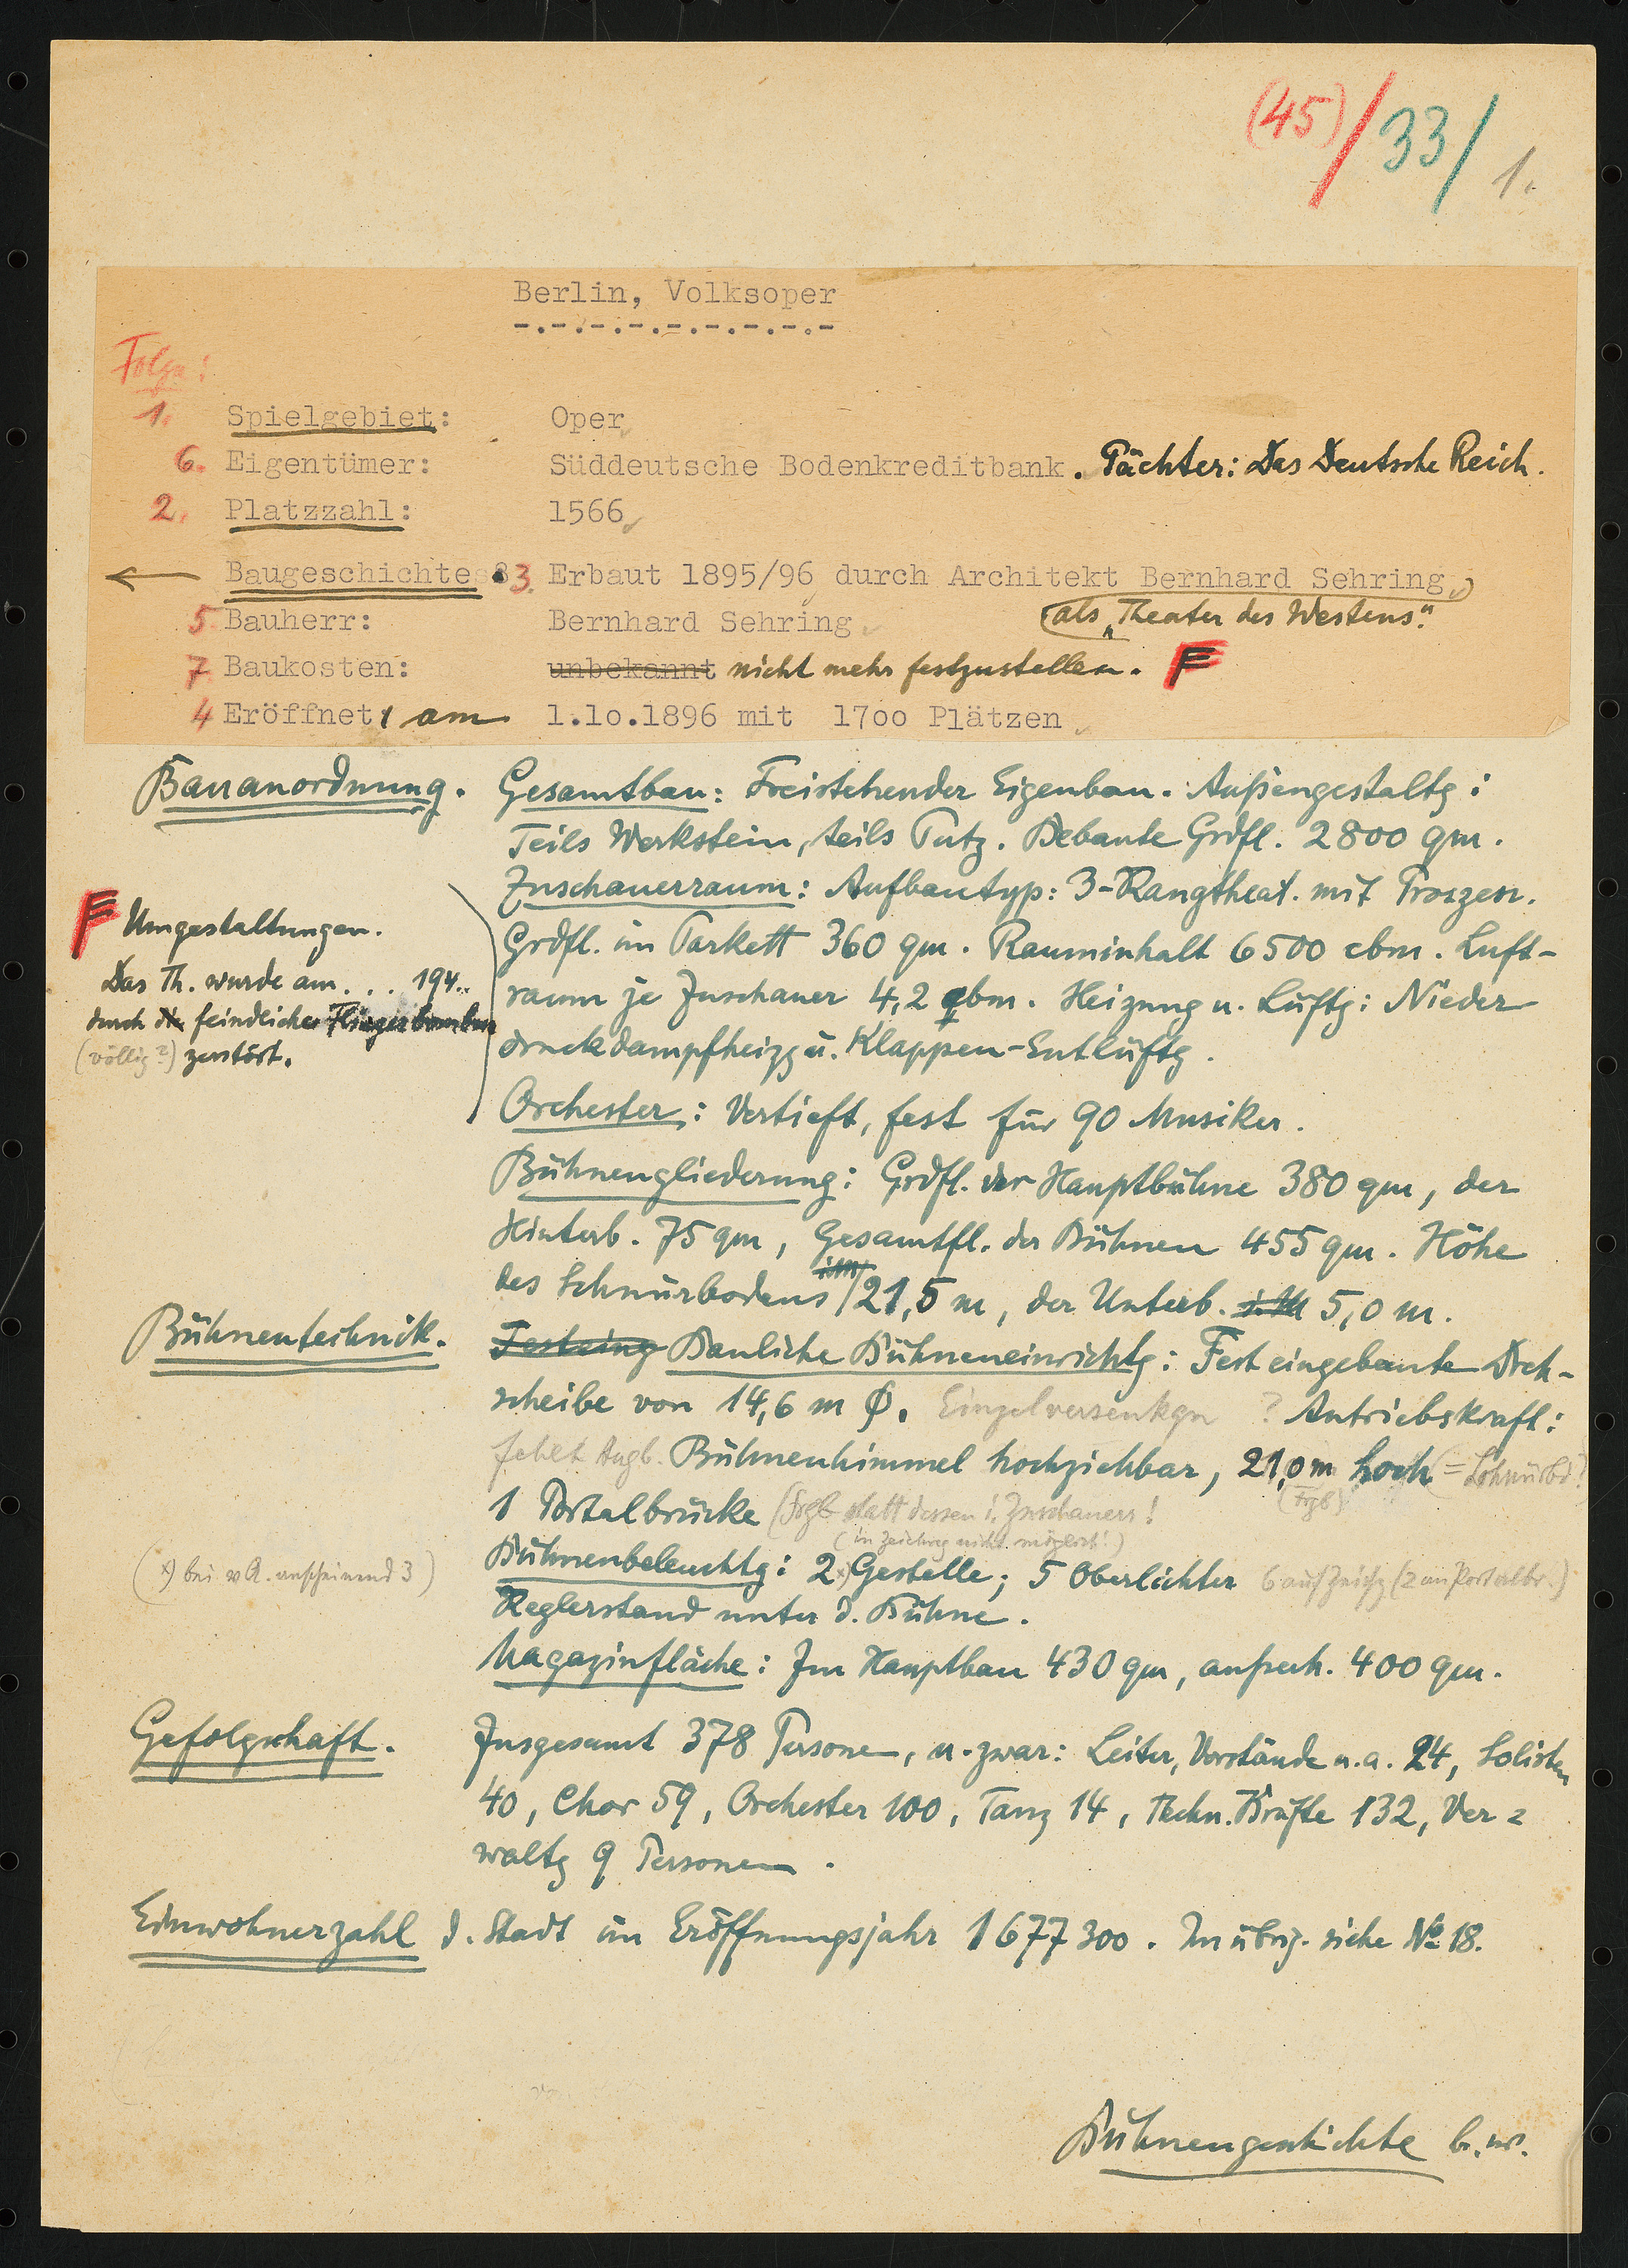 (45)/33/1.
Berlin, Volksoper
-.-.-.-.-.-.-.-.-.-
Folge:
1. Spielgebiet: Oper
6. Eigentümer: Süddeutsche Bodenkreditbank. Pächter: Das Deutsche Reich.
2. Platzzahl: 1566
← Baugeschichte 3. Erbaut 1895/96 durch Architekt Bernhard Sehring
5 Bauherr: Bernhard Sehring als „Theater des Westens".
7 Baukosten: unbekannt nicht mehr festzustellen. F
4 Eröffnet am 1.10.1896 mit 1700 Plätzen
Bauanordnung. Gesamtbau: Freistehender Eigenbau. Außengestaltg:
Teils Werkstein, teils Putz. Bebaute Grdfl. 2800 qm.
Zuschauerraum: Aufbautyp: 3-Rangtheat. mit Proszen.
Grdfl. im Parkett 360 qm. Rauminhalt 6500 cbm. Luft-
raum je Zuschauer 4,2 cbm. Heizung u. Lüftg: Nieder
druckdampfheizg u. Klappen-Entlüftg.
F Umgestaltungen.
Das Th. wurde am . . . 194..
durch die feindliche Fliegerbomben
(völlig?) zerstört.
Orchester: Vertieft, fest für 90 Musiker.
Bühnengliederung: Grdfl. der Hauptbühne 380 qm, der
Hinterb. 75 qm, Gesamtfl. der Bühnen 455 qm. Höhe
des Schnürbodens im 21,5 m, der Unterb. 5,0 m.
Bühnentechnik. Festeing Bauliche Bühneneinrichtg: Fest eingebaute Dreh-
scheibe von 14,6 m Ø. Einzelversenkgn ? Antriebskraft:
fehlt Angb. Bühnenhimmel hochziehbar, 21,0 m hoch (= Schnürbd?)
(Frgb)
1 Portalbrücke (Frgb statt dessen i. Zuschauerr!
(in Zeichng nicht möglich!)
(x) bei v A. anscheinend 3) Bühnenbeleuchtg: 2 x) Gestelle; 5 Oberlichter 6 auf Zeichg (2 an Portalbr.)
Reglerstand unter d. Bühne.
Magazinfläche: Im Hauptbau 430 qm, außerh. 400 qm.
Gefolgschaft. Insgesamt 378 Personen, u. zwar: Leiter, Vorstände u.a. 24, Solisten
40, Chor 59, Orchester 100, Tanz 14, Techn. Kräfte 132, Ver=
waltg 9 Personen.
Einwohnerzahl d. Stadt im Eröffnungsjahr 1677300. Im übrig. siehe No 18.
Bühnengeschichte b. w.